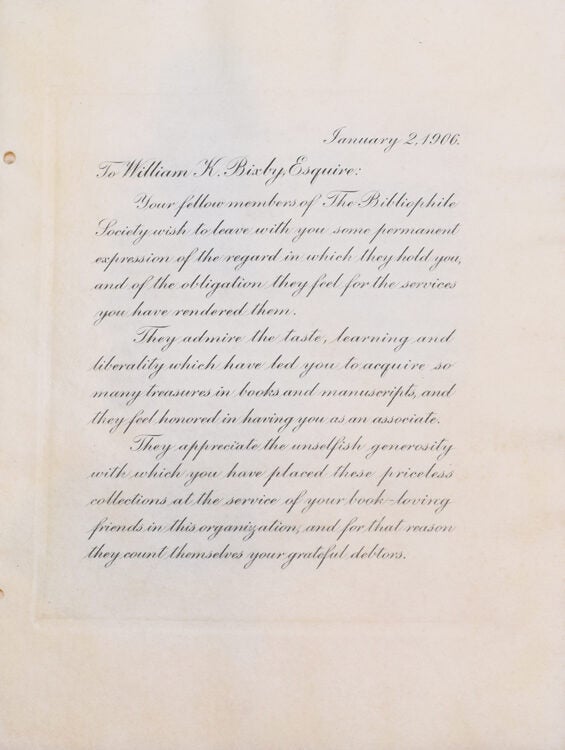 January 2, 1906.
To William K. Bixby, Esquire:
Your fellow members of The Bibliophile
Society wish to leave with you some permanent
expression of the regard in which they hold you,
and of the obligation they feel for the services
you have rendered them.
They admire the taste, learning and
liberality which have led you to acquire so
many treasures in books and manuscripts, and
they feel honored in having you as an associate.
They appreciate the unselfish generosity
with which you have placed these priceless
collections at the service of your book-loving
friends in this organization, and for that reason
they count themselves your grateful debtors.